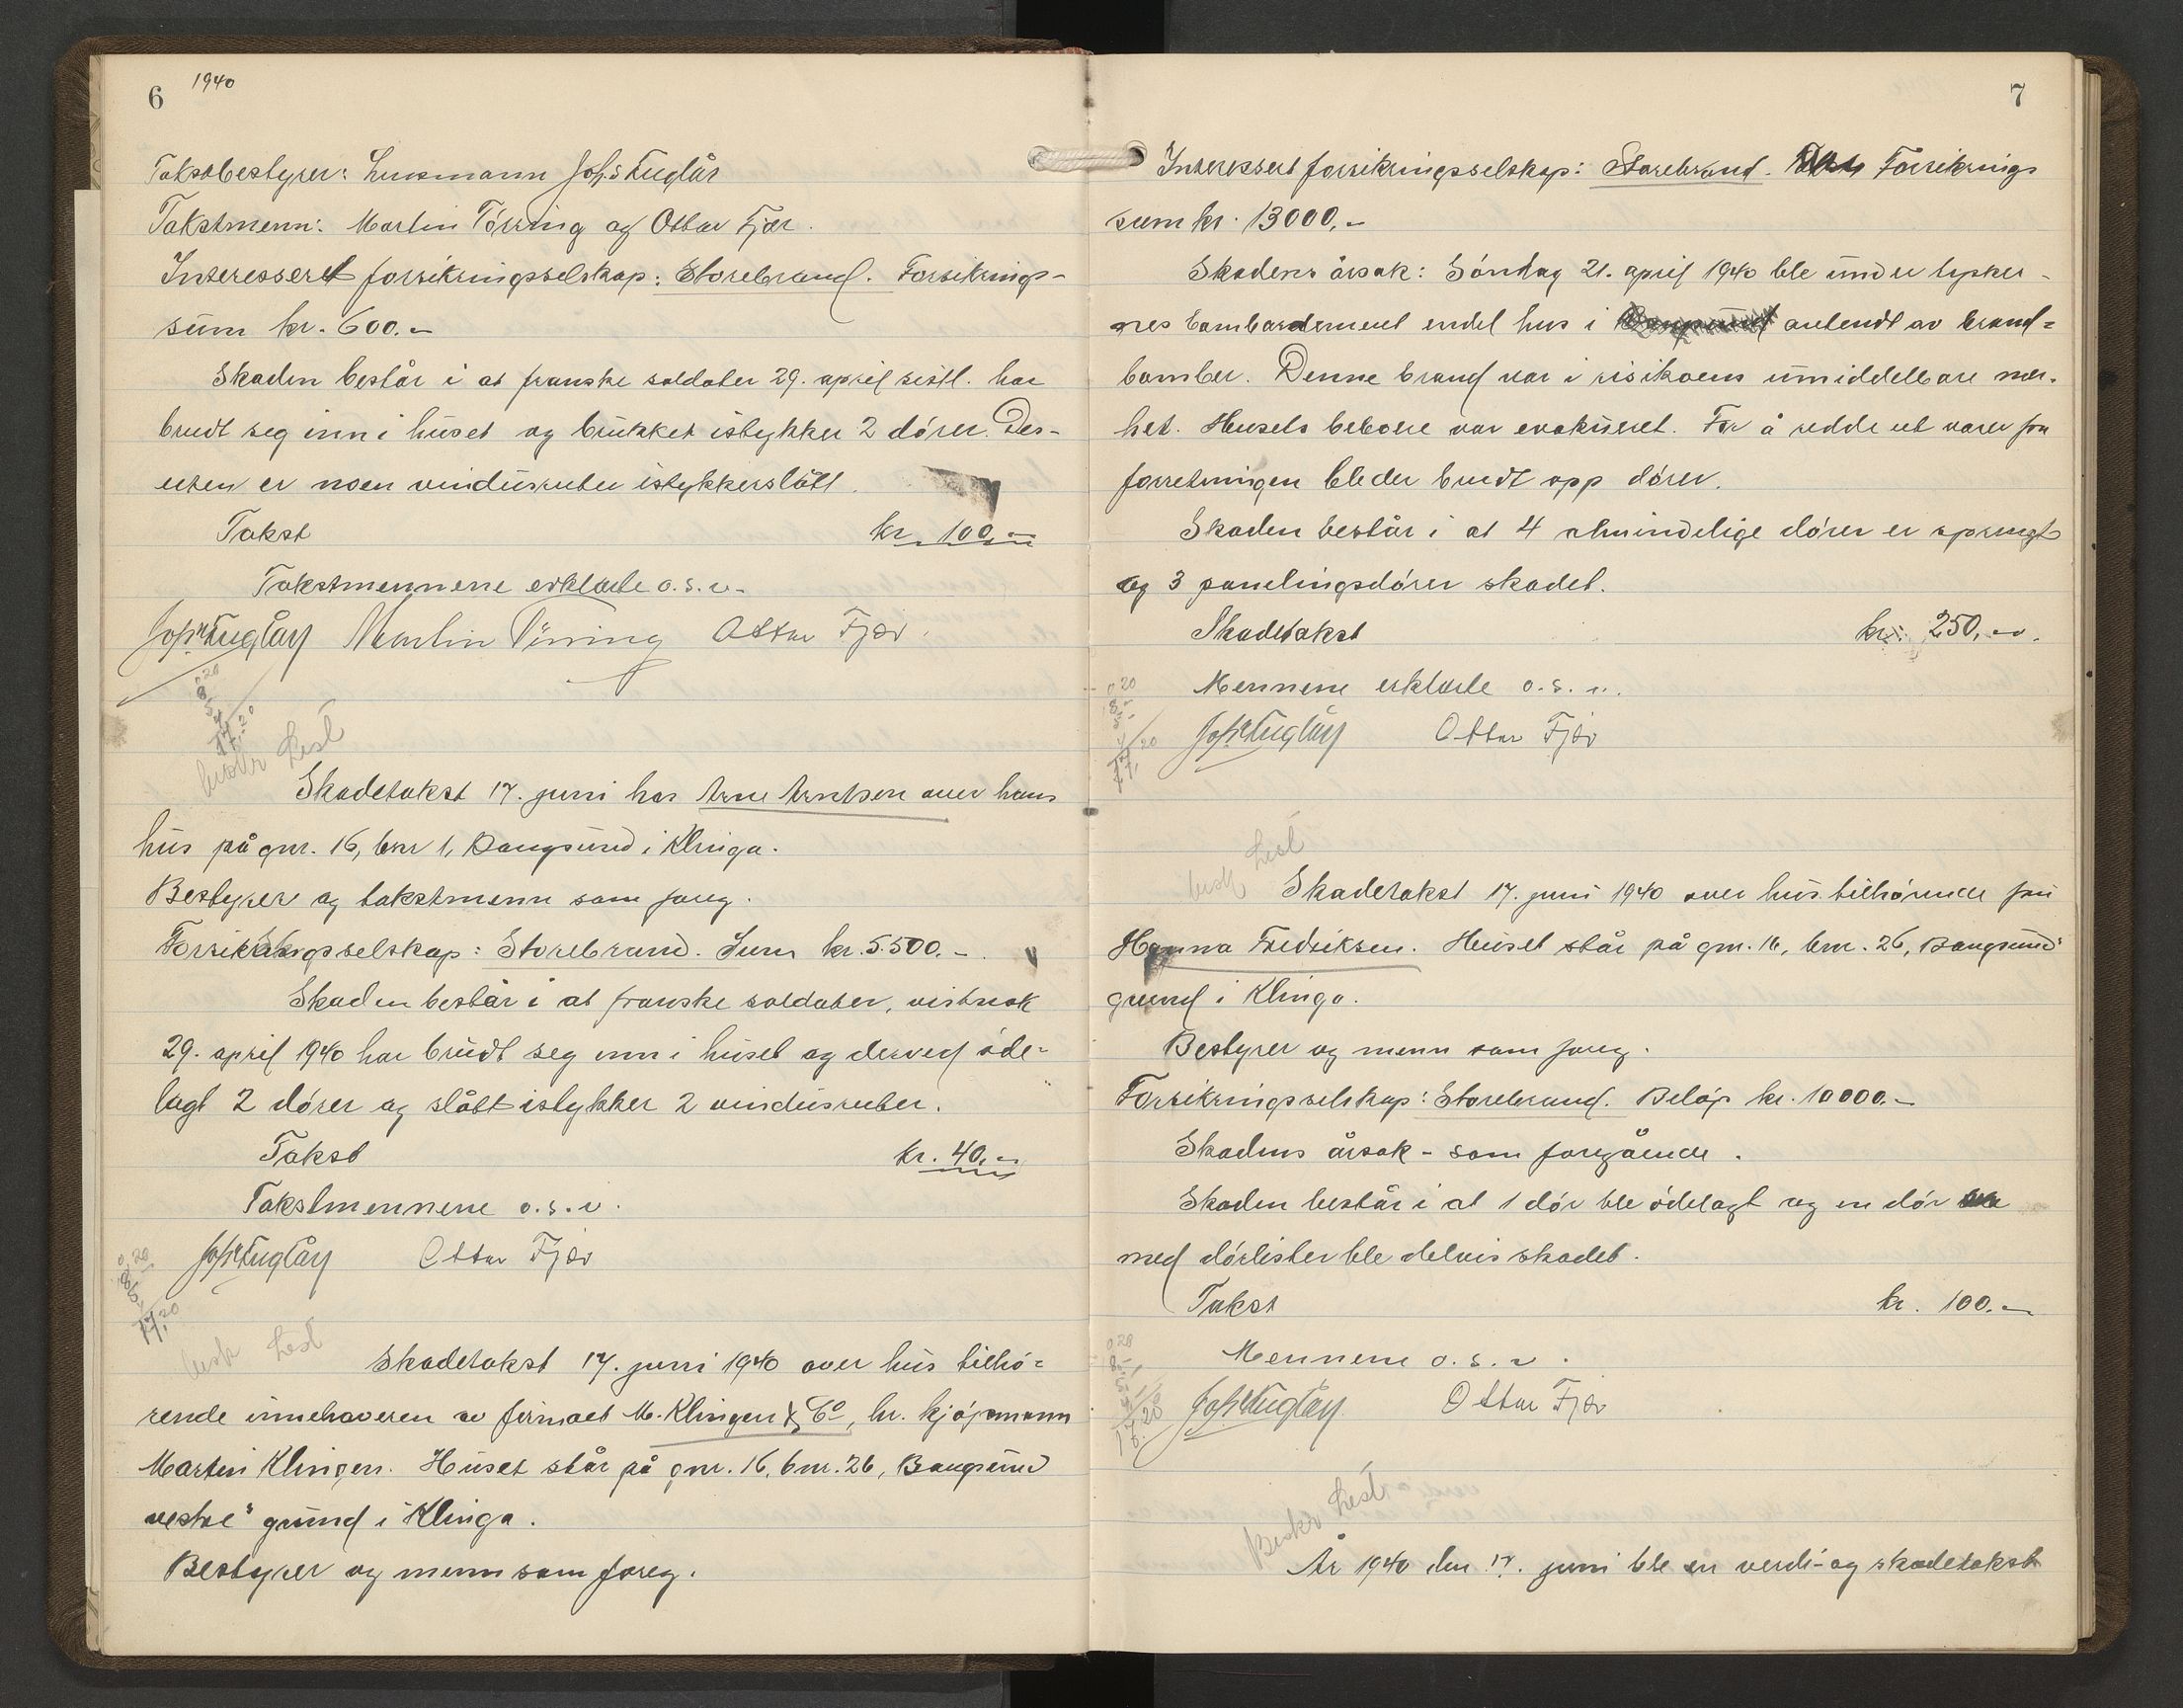 6 1940
Takstbestyrer: Lensmann Johs Fuglår
Takstmenn: Martin Törring og Ottar Fjær.
Interesseret forsikringsselskap: Storebrand. Forsikrings-
sum kr. 600.-
Skaden består i at franske soldater 29. april sistl. har
brudt seg inn i huset og brukket istykker 2 dörer. Des-
uten er noen vindusruter istykkerslått.
Takst kr. 100,-
Takstmennene erklærte o.s.v.
Johs Fuglår Martin Törring Ottar Fjær.
0.20
8-
5-
4
17.20
beskr Lest
Skadetakst 17. juni hos Arne Arntsen over hans
hus på gnr. 16, bnr 1, Bangsund i Klinga.
Bestyrer og takstmenn som foreg.
Forsikringsselskap: Storebrand. Sum kr. 5.500.-
Skaden består i at franske soldater, vistnok
29. april 1940 har brudt seg inn i huset og derved öde-
lagt 2 dörer og slått istykker 2 vindusruter.
Takst kr. 40.-
Takstmennene o.s.v.
Johs Fuglår Ottar Fjær
0.20
8-
5-
4
17.20
beskr Lest
Skadetakst 17. juni 1940 over hus tilhö-
rende innehaveren av firmaet M. Klingen & Co, hr. kjöpmann
Martin Klingen. Huset står på gnr. 16, bnr. 26, Bangsund
vestre" grund i Klinga.
Bestyrer og menn som foreg.
7
Interessert forsikringsselskap: Storebrand. Forsikrings
sum kr. 13000,-
Skadens årsak: Söndag 21. april 1940 ble under tysker-
nes bombardement endel hus i Bangsund antendt av brand-
bomber. Denne brand var i risikoens umiddelbare nær-
het. Husets beboere var evakueret. For å redde ut varer fra
forretningen ble der brudt opp dörer.
Skaden består i at 4 almindelige dörer er sprengt
og 3 panelingsdörer skadet.
Skadetakst kr. 250,-.
Mennene erklærte o.s.v.
0.20
8-
5-
4
17.20
Johs Fuglår Ottar Fjær
beskr Lest
Skadetakst 17. juni 1940 over hus tilhörende fru
Hanna Fredriksen. Huset står på gnr. 16, bnr. 26, Bangsund
grund i Klinga.
Bestyrer og menn som foreg.
Forsikringsselskap: Storebrand. Belöp kr. 10000.-
Skadens årsak - som foregående.
Skaden består i at 1 dör ble ödelagt og en dör
med dörlister ble delvis skadet.
Takst kr. 100.-
Mennene o.s.v.
0.20
8-
5-
4
17.20
Johs Fuglår Ottar Fjær
Beskr Lest
År 1940 den 17. juni ble en verdi- og skadetakst